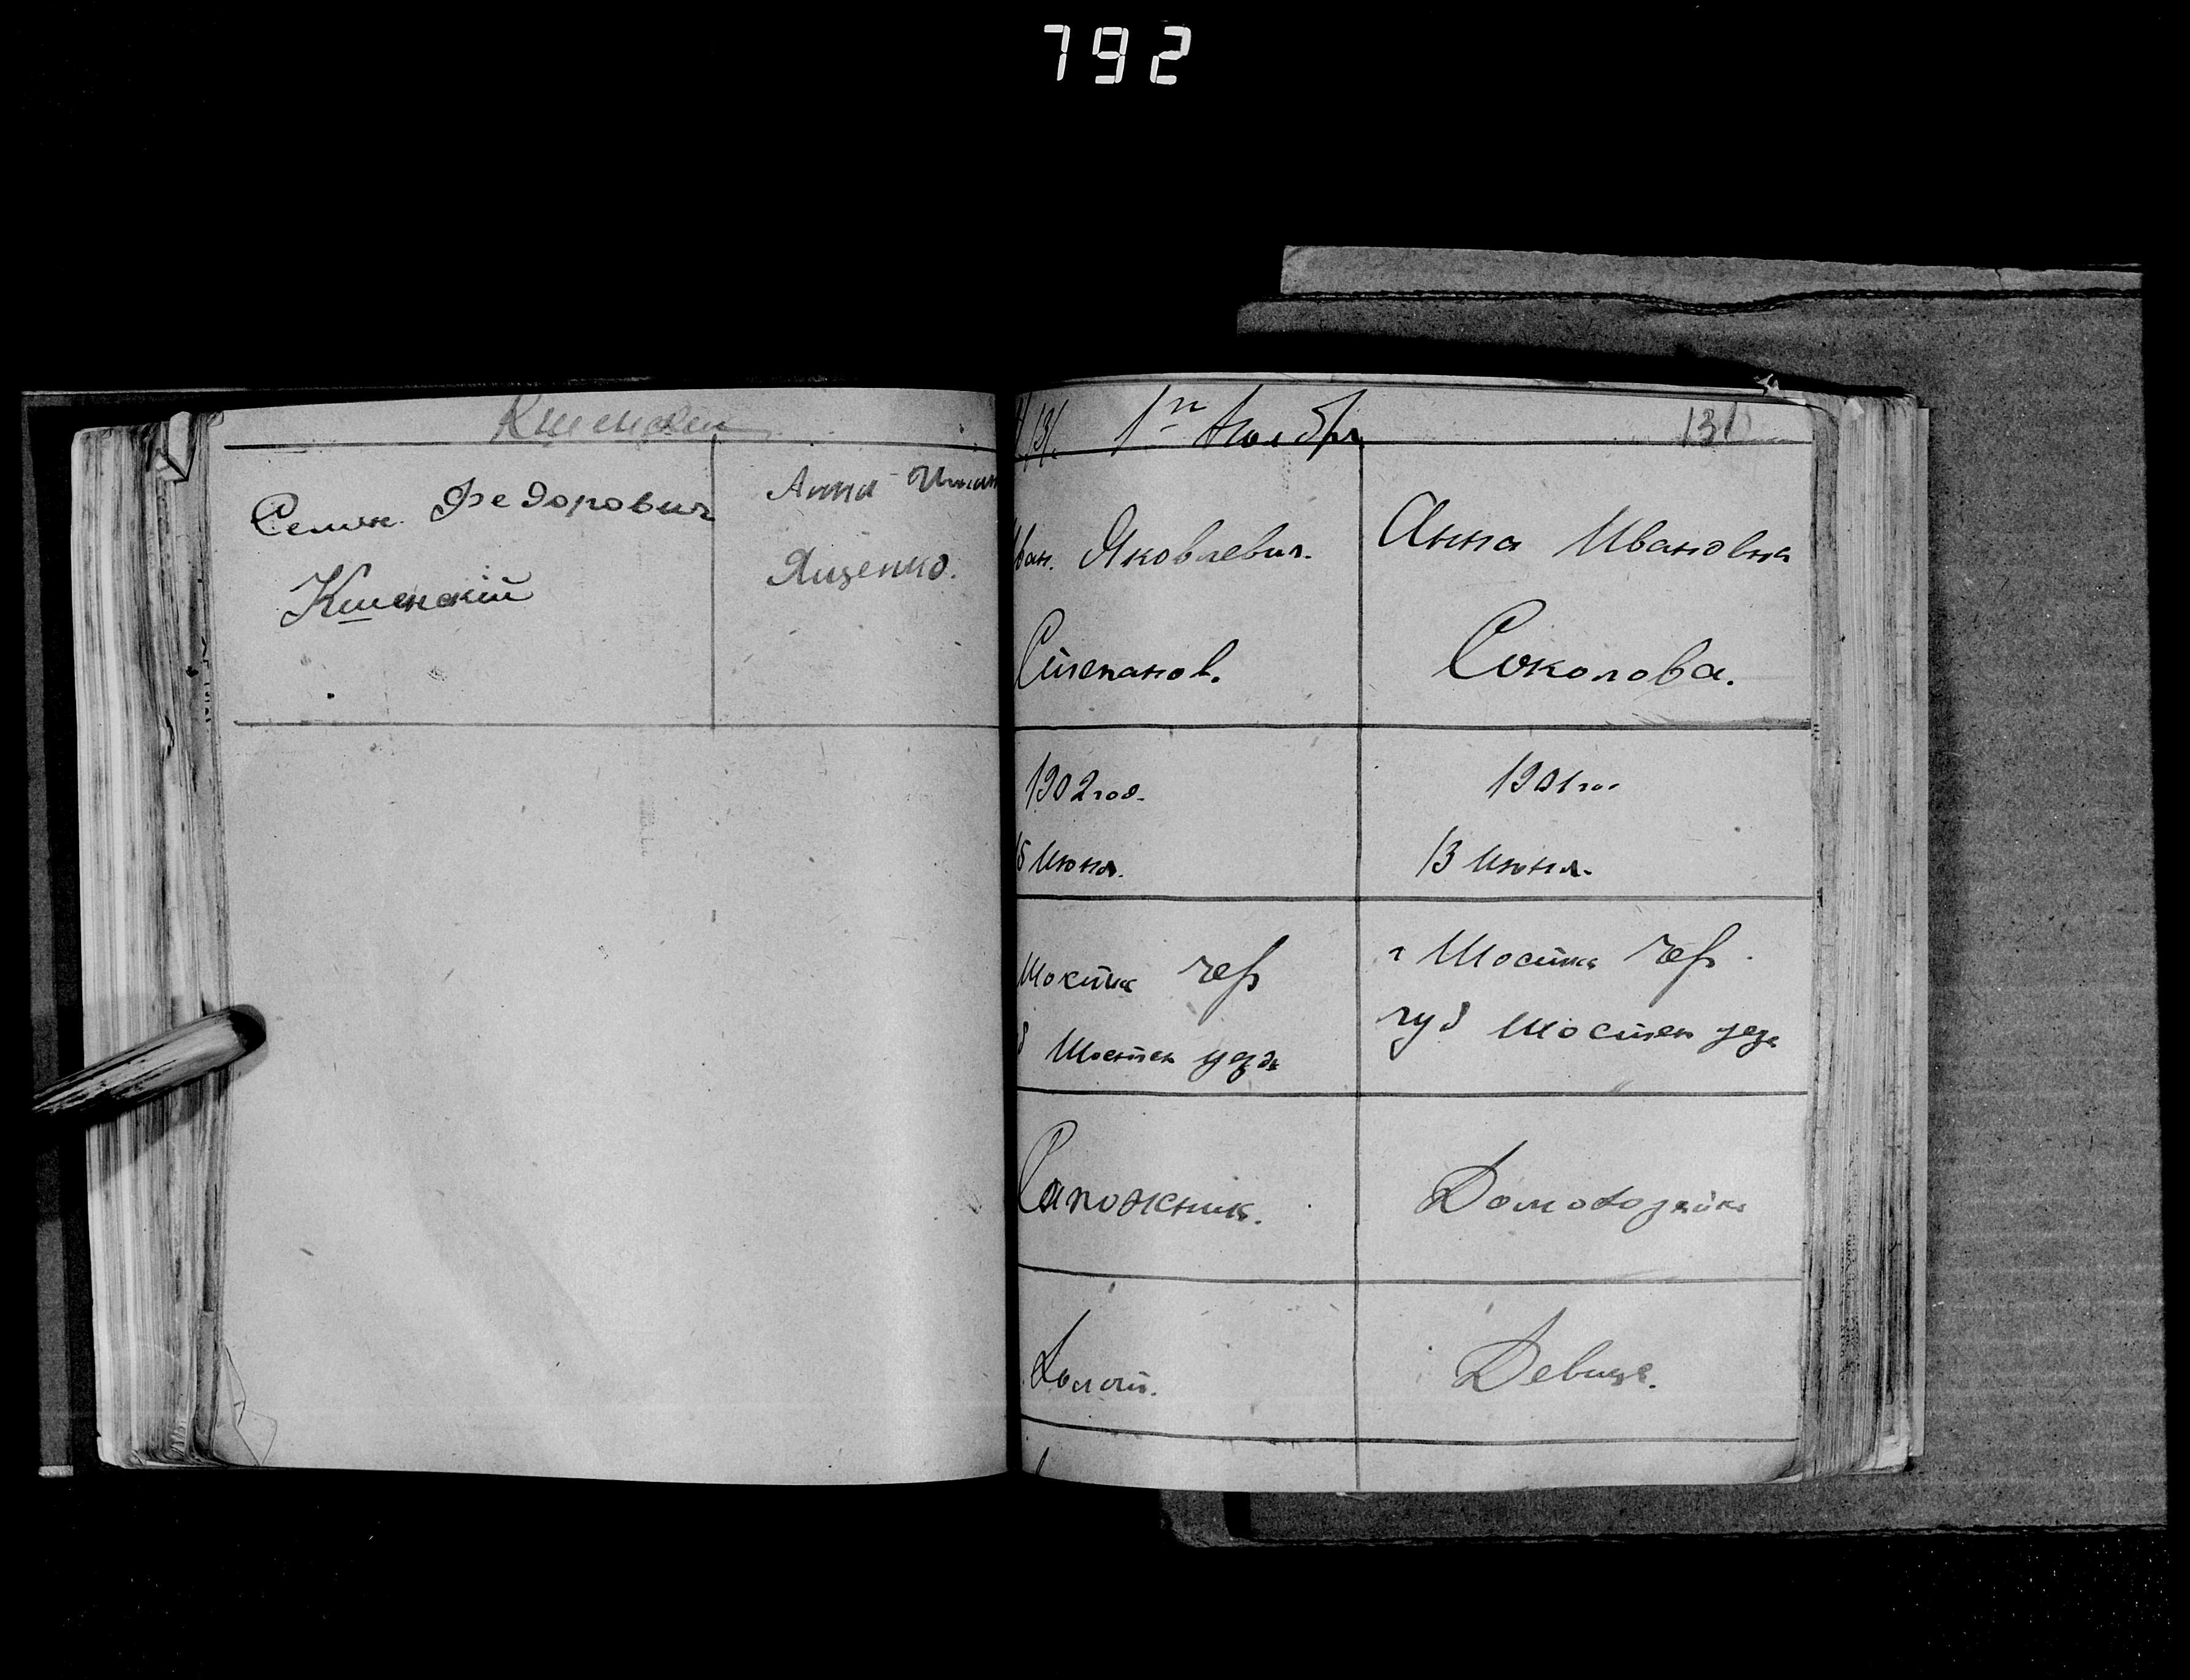 792
Кшенский
Семен Федорович
Кшенскій
Анна
Ященко.
131. 1го Ноября 131
ван. Яковлевич.
Степанов.
Анна Ивановна
Соколова.
1902 год.
15 Июня.
1901 го
13 Июня.
Шостка чер
Шостен уезд
г Шостка чер.
губ Шостен уезд
Сапожник.
Домохозяйка
Холост.
Девица.